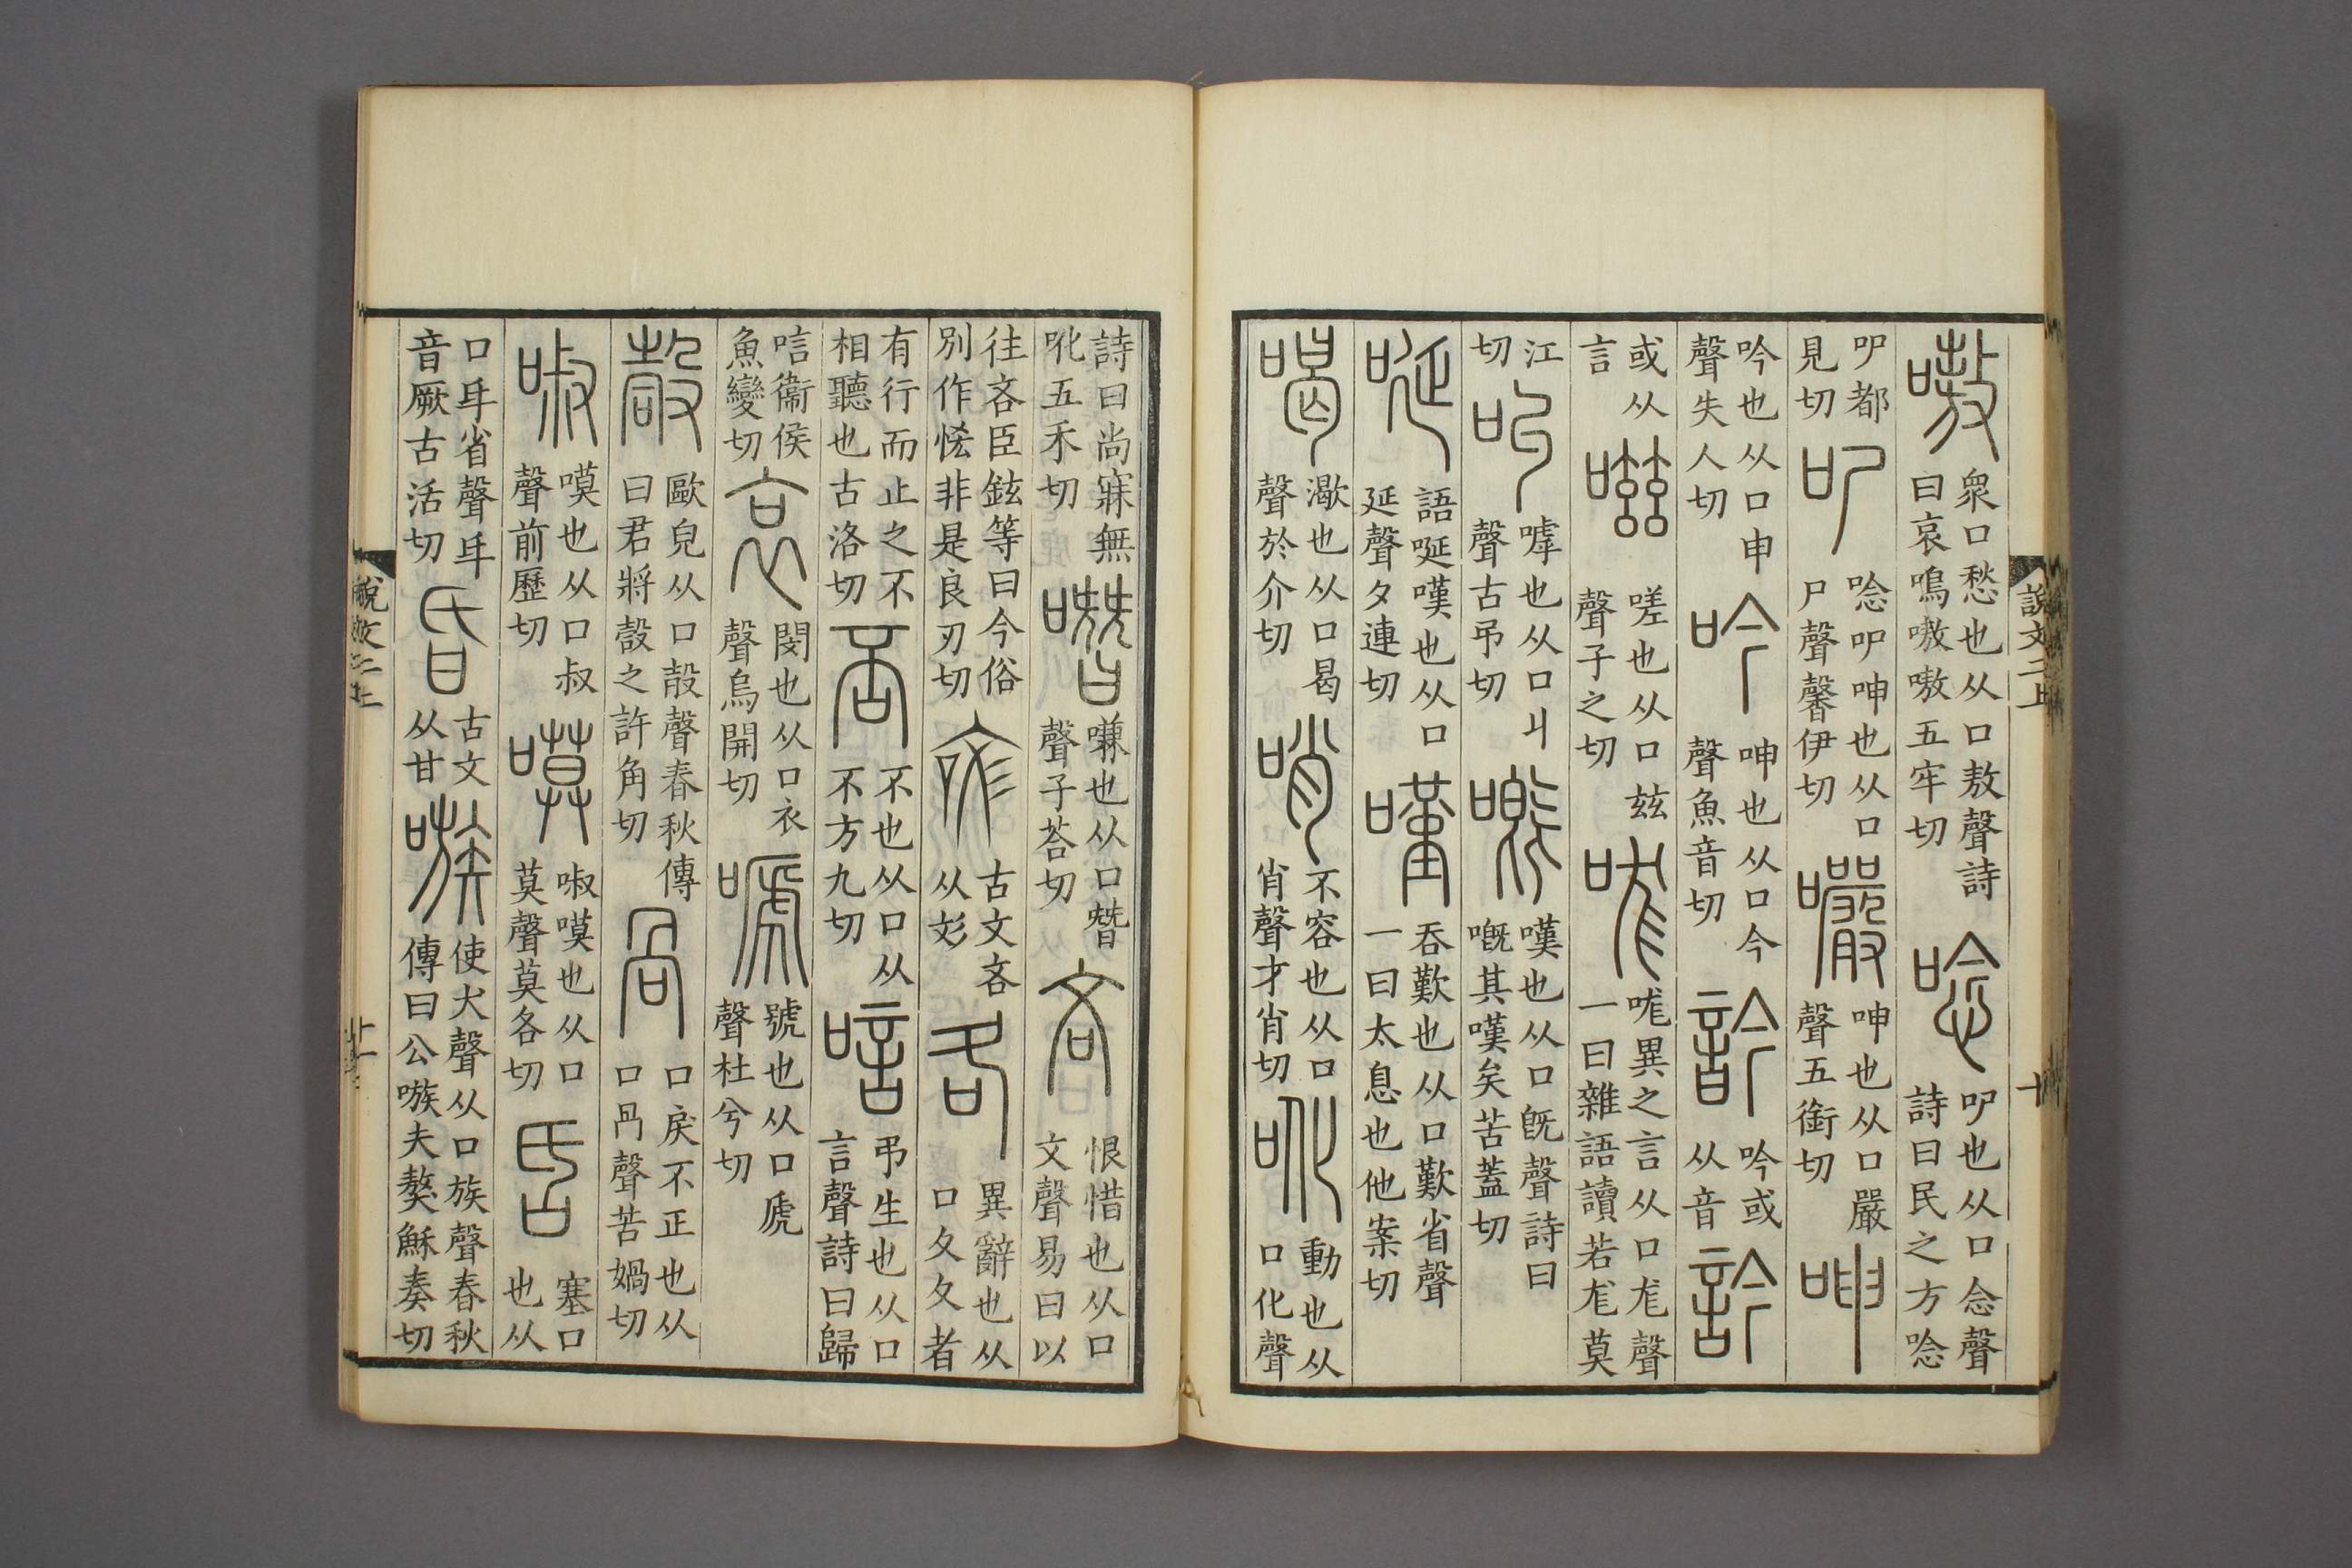 說文二上
十
嗷衆口愁也从口敖聲詩曰哀鳴嗷嗷五牢切唸㕧也从口念聲詩曰民之方唸
㕧都見切㕧唸㕧呻也从口尸聲馨伊切㘙呻也从口嚴聲五銜切呻
吟也从口申聲失人切吟呻也从口今聲魚音切䪩吟或从音訡
或从言嗞嗟也从口兹聲子之切哤哤異之言从口尨聲一曰雜語讀若尨莫
江切叫嘑也从口丩聲古弔切嘅嘆也从口旣聲詩曰嘅其嘆矣苦蓋切
唌語唌嘆也从口延聲夕連切嘆吞歎也从口歎省聲一曰太息也他案切
喝㵣也从口曷聲於介切哨不容也从口肖聲才肖切吪動也从口化聲
詩曰尚寐無吪五禾切噆嗛也从口朁聲子荅切吝恨惜也从口文聲易曰以
往吝臣鉉等曰今俗別作恡非是良刃切㖁古文吝从彣各異辭也从口夂夂者
有行而止之不相聽也古洛切否不也从口从不方九切唁弔生也从口言聲詩曰歸
唁衞侯魚變切哀閔也从口衣聲烏開切嗁號也从口虒聲杜兮切
嗀歐皃从口㱿聲春秋傳曰君將嗀之許角切咼口戾不正也从口冎聲苦媧切
㖡嗼也从口叔聲前歷切嗼㖡嗼也从口莫聲莫各切𠯑塞口也从
口氒省聲氒音厥古活切昏古文从甘嗾使犬聲从口族聲春秋傳曰公嗾夫獒穌奏切
說文二上
十一